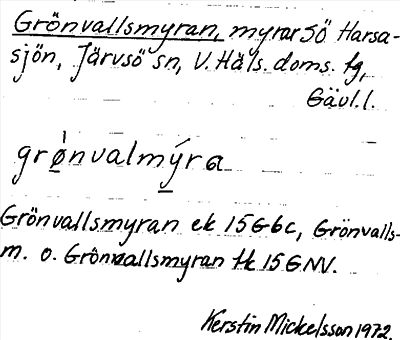 Grönvallsmyran, myrar SÖ Harsa-
sjön, Järvsö sn, V. Häls. doms. tg,
Gävl. l.
grø̀nvalmýra
Grönvallsmyran ek 15G6c, Grönvalls-
m. o. Grönvallsmyran tk 15G NV.
Kerstin Mickelsson 1972.